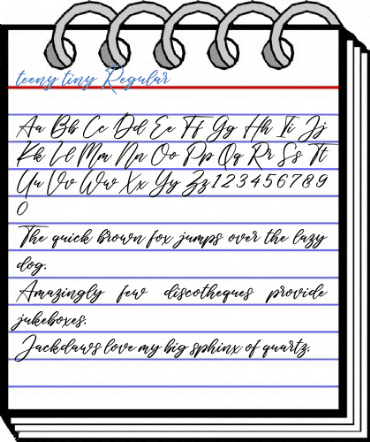 teeny tiny Regular
Aa Bb Cc Dd Ee Ff Gg Hh Ii Jj
Kk Ll Mm Nn Oo Pp Qq Rr Ss Tt
Uu Vv Ww Xx Yy Zz 1 2 3 4 5 6 7 8 9
0
The quick brown fox jumps over the lazy
dog.
Amazingly few discotheques provide
jukeboxes.
Jackdaws love my big sphinx of quartz.